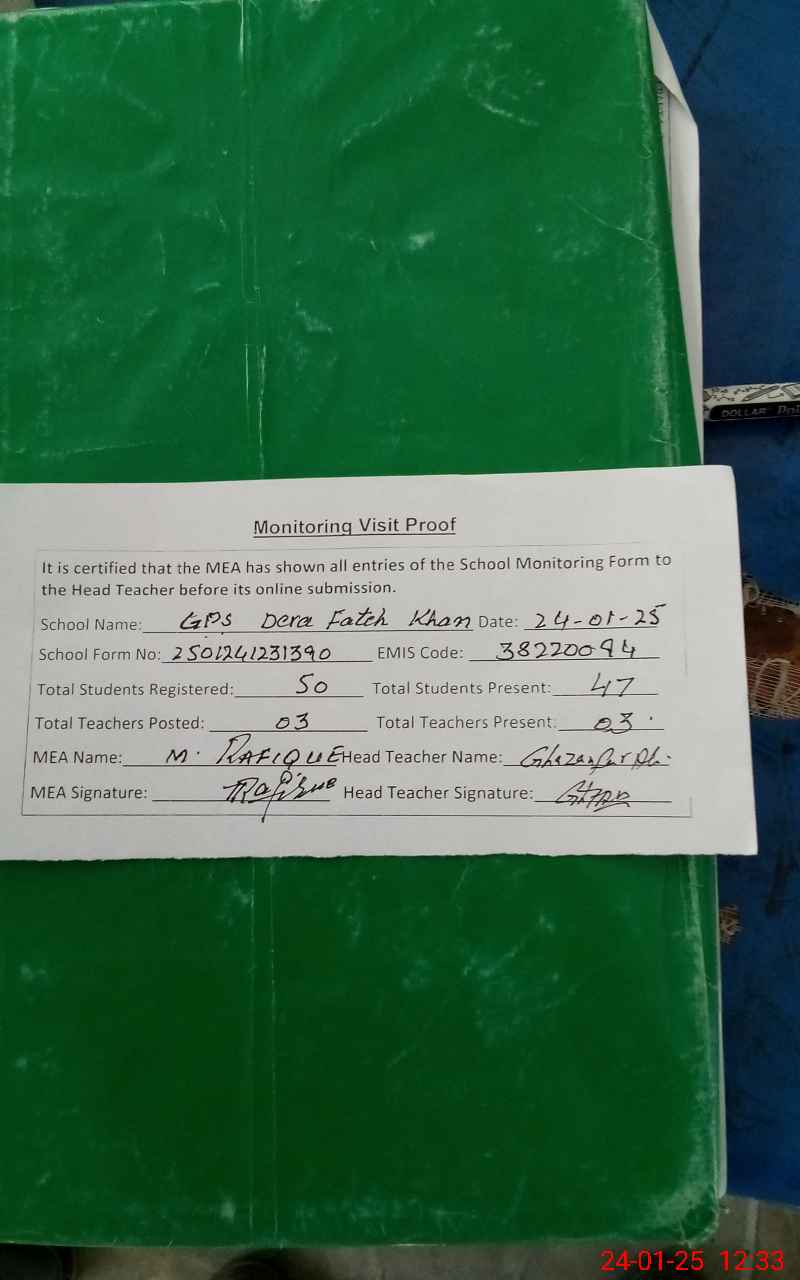 DOLLAR
Monitoring Visit Proof
It is certified that the MEA has shown all entries of the School Monitoring Form to
the Head Teacher before its online submission.
School Name: GPS Dera Fateh Khan Date: 24-01-25
School Form No: 2501241231390 EMIS Code: 38220094
Total Students Registered: 50 Total Students Present: 47
Total Teachers Posted: 03 Total Teachers Present: 03
MEA Name: M. RAFIQUE Head Teacher Name: Ghazanfar
MEA Signature: Rafique Head Teacher Signature:
24-01-25 12:33